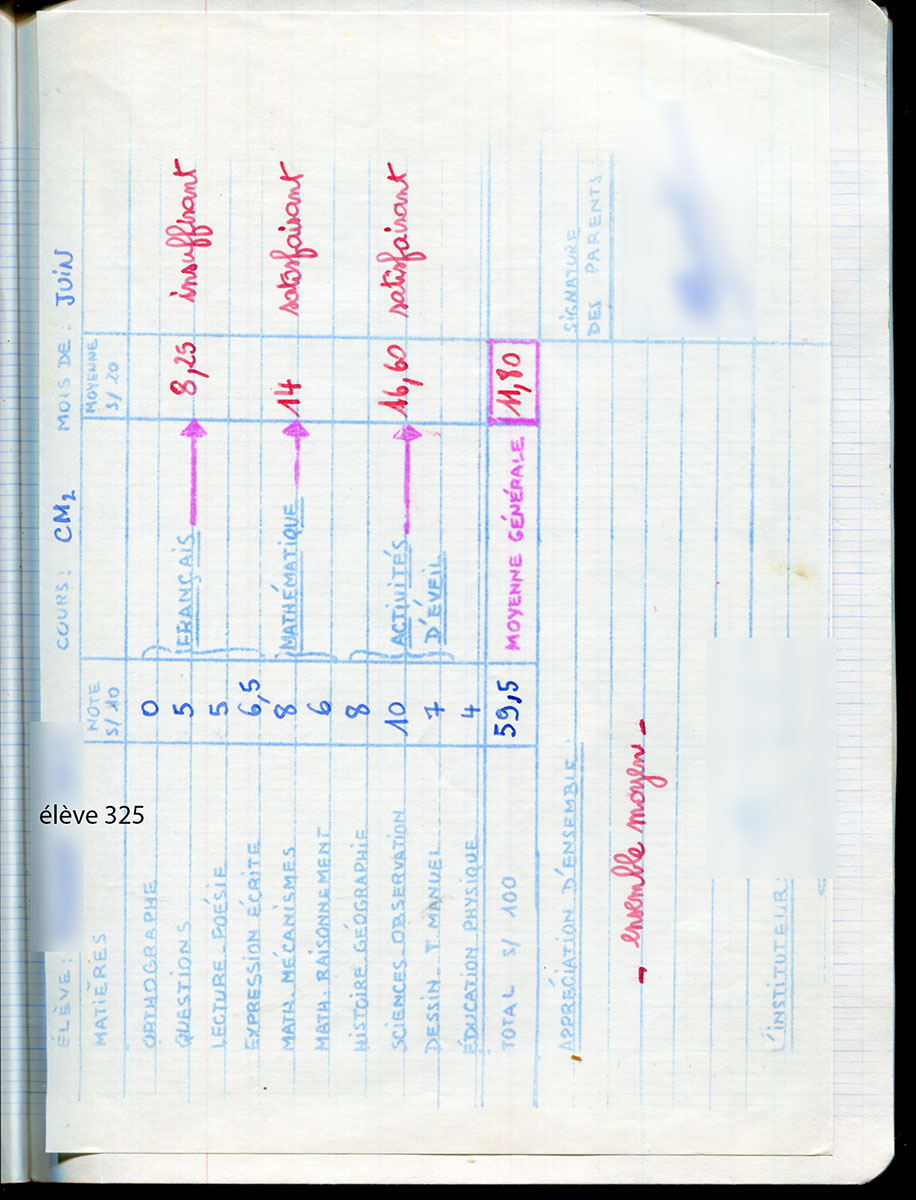 ÉLÈVE : élève 325 COURS : CM2 MOIS DE : JUIN
MATIÈRES NOTE S/10 MOYENNE S/20
ORTHOGRAPHE 0
QUESTIONS 5 FRANÇAIS 8,25 insuffisant
LECTURE_POÉSIE 5
EXPRESSION ÉCRITE 6,5
MATH. MÉCANISMES 8 MATHÉMATIQUE 14 satisfaisant
MATH. RAISONNEMENT 6
HISTOIRE GÉOGRAPHIE 8
SCIENCES_OBSERVATION 10 ACTIVITÉS 16,60 satisfaisant
DESSIN_T MANUEL 7 D'ÉVEIL
ÉDUCATION PHYSIQUE 4
TOTAL S/ 100 59,5 MOYENNE GÉNÉRALE 11,80
APPRÉCIATION D'ENSEMBLE : SIGNATURE
DES PARENTS :
- ensemble moyen -
L'INSTITUTEUR :